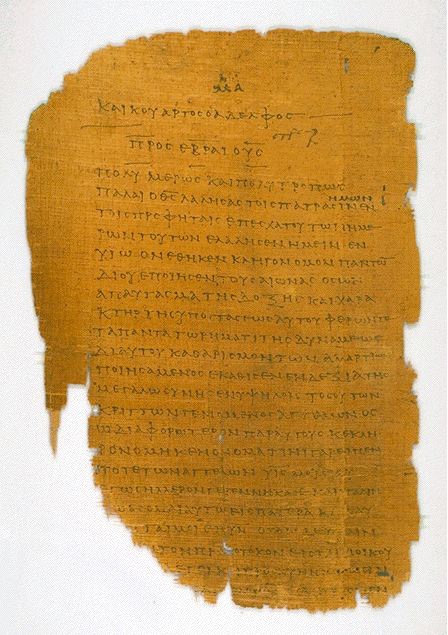 ΚΑΙ ΚΟΥΑΡΤΟϹ Ο ΑΔΕΛΦΟϹ
ΠΡΟϹ ΕΒΡΑΙΟΥϹ
ΠΟΛΥΜΕΡΩϹ ΚΑΙ ΠΟΛΥΤΡΟΠΩϹ
ΗΜΩΝ
ΠΑΛΑΙ Ο ΘϹ ΛΑΛΗϹΑϹ ΤΟΙϹ ΠΑΤΡΑϹΙΝ ΕΝ
ΤΟΙϹ ΠΡΟΦΗΤΑΙϹ ΕΠ ΕϹΧΑΤΟΥ ΤΩΝ ΗΜΕ
ΡΩΝ ΤΟΥΤΩΝ ΕΛΑΛΗϹΕΝ ΗΜΕΙΝ ΕΝ
ΥΙΩ ΟΝ ΕΘΗΚΕΝ ΚΛΗΡΟΝΟΜΟΝ ΠΑΝΤΩ̅
ΔΙ ΟΥ ΕΠΟΙΗϹΕΝ ΤΟΥϹ ΑΙΩΝΑϹ ΟϹ ΩΝ
ΑΠΑΥΓΑϹΜΑ ΤΗϹ ΔΟΞΗϹ ΚΑΙ ΧΑΡΑ
ΚΤΗΡ ΤΗϹ ΥΠΟϹΤΑϹΕΩϹ ΑΥΤΟΥ ΦΕΡΩΝ ΤΕ
ΤΑ ΠΑΝΤΑ ΤΩ ΡΗΜΑΤΙ ΤΗϹ ΔΥΝΑΜΕΩϹ
ΔΙ ΑΥΤΟΥ ΚΑΘΑΡΙϹΜΟΝ ΤΩΝ ΑΜΑΡΤΙΩ̅
ΠΟΙΗϹΑΜΕΝΟϹ ΕΚΑΘΙϹΕΝ ΕΝ ΔΕΞΙΑ ΤΗϹ
ΜΕΓΑΛΩϹΥΝΗϹ ΕΝ ΥΨΗΛΟΙϹ ΤΟϹΟΥΤΩ
ΚΡΙΤΤΩΝ ΓΕΝΟΜΕΝΟϹ ΑΓΓΕΛΩΝ ΟϹ
Ω ΔΙΑΦΟΡΩΤΕΡΟΝ ΠΑΡ ΑΥΤΟΥϹ ΚΕΚΛΗ
ΡΟΝΟΜΗΚΕΝ ΟΝΟΜΑ ΤΙΝΙ ΓΑΡ ΕΙΠΕΝ
ΠΟΤΕ ΤΩΝ ΑΓΓΕΛΩΝ ΥΙΟϹ ΜΟΥ
ΕΓΩ ϹΗΜΕΡΟΝ ΓΕΓΕΝΝΗΚΑ ϹΕ ΚΑΙ ΠΑΛΙΝ